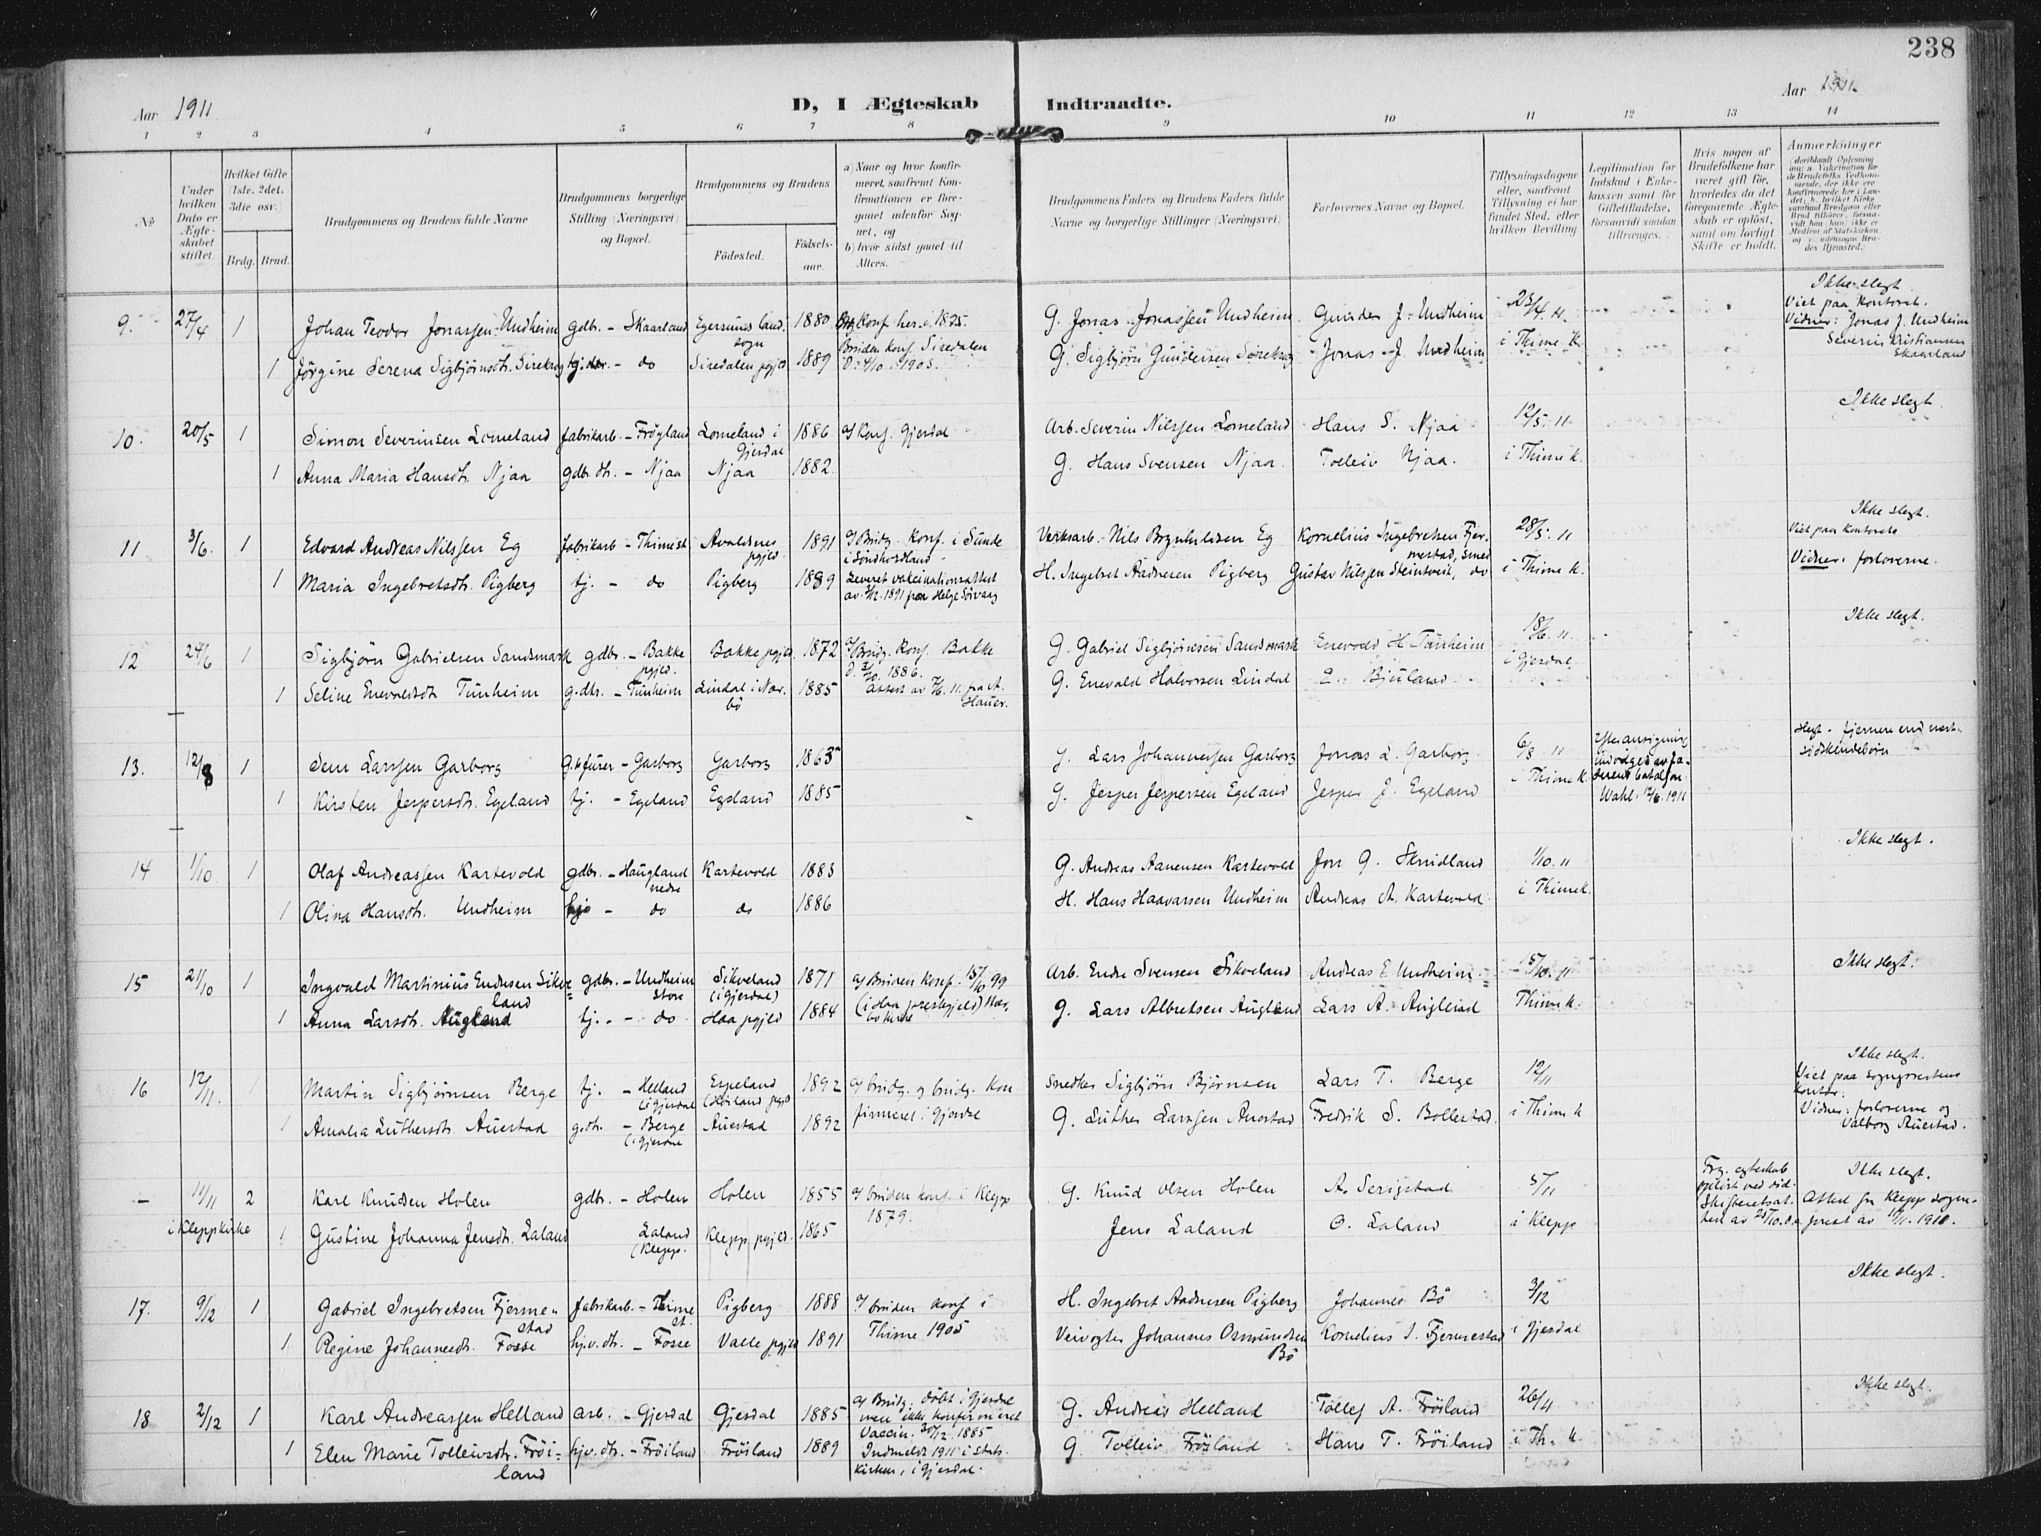 238
Aar 1911
D, I Ægteskab Indtraadte.
Aar 1911.
1 2 3 4 5 6 7 8 9 10 11 12 13 14
No
Under hvilken Dato er Ægteskabet stiftet
Hvilket Gifte (1ste, 2det, 3die osv.)
Brdg. Brud.
Brudgommens og Brudens fulde Navne
Brudgommens borgerlige Stilling (Næringsvei) og Bopæl.
Brudgommens og Brudens
Fødested.
Fødselsaar.
a) Naar og hvor konfirmeret, saafremt Konfirmationen er foregaaet udenfor Sognet, og
b) hvor sidst gaaet til Alters.
Brudgommens Faders og Brudens Faders fulde Navne og borgerlige Stillinger (Næringsvei)
Forlovernes Navne og Bopæl.
Tillysningsdagene eller, saafremt Tillysning ei har fundet Sted, efter hvilken Bevilling
Legitimation for Indskud i Enkekassen samt for Giftetilladelse, forsaavidt saadan tiltrænges.
Hvis nogen af Brudefolkene har været gift før, hvorledes da det foregaaende Ægteskab er opløst, samt om lovligt Skifte er holdt.
Anmerkninger
9. 27/4 1 Johan Teodor Jonassen Undheim gdbr. - Skaarland Egersunds landsogn 1880 Konf. her i 1895. G. Jonas Jonassen Undheim Gunder J. Undheim 23/4 11. Ikke slegt. Viet paa kontoret.
1 Jørgine Serena Sigbjørnsdt. Sirekrog - do Siredalen pgjld 1889 Bruden konf. Siredalen d. 4/10 1905. G. Sigbjørn Gundersen Sirekrog Jonas J. Undheim i Thime k. Vidner: Jonas J. Undheim Severin Kristiansen Skaarland
10. 20/5 1 Simon Severinsen Lomeland fabrikarb. - Frøyland Lomeland i Gjesdal 1886 a/ Konf. Gjesdal Arb. Severin Nilssen Lomeland Hans S. Njaa 12/5. 11 Ikke slegt.
1 Anna Maria Hansdt. Njaa gdbr. dt. - Njaa Njaa 1882 G. Hans Svensen Njaa. Tolleiv Njaa. i Thime k.
11 3/6. 1 Edvard Andreas Nilssen Eg fabrikarb - Thime st Avaldsnes pgjld. 1891 a/ Brudg. konf. i Sunde i Søndhordland Verksarb. Nils Brynhildsen Eg Kornelius Ingebretsen Fjermestad, smed 28/5. 11 Ikke slegt. Viet paa kontoret
1 Maria Ingebretsdt. Pigberg tj. - do Pigberg 1889 Leveret vakcinationsattest av 1891 fra Helge Sørvaag H. Ingebret Aadnesen Pigberg Gustav Nilssen Steintveit, do i Thime k. Vidner: forloverne.
12 24/6 1 Sigbjørn Gabrielsen Sandsmark gdbr. - Bakke pgjld. Bakke pgjld. 1872 a/ Brudg. konf. Bakke 1886. G. Gabriel Sigbjørnsen Sandsmark Enevold H. Tunheim 18/6. 11. Ikke slegt.
1 Seline Enevoldsdt Tunheim g.dtr. - Tunheim Lindal i Nærbø 1885 Attest av 7/6. 11. fra A. Hauer. G. Enevald Halvorsen Lindal E. Bjuland i Gjesdal.
13. 12/8 1 Sem Larssen Garborg - Garborg Garborg 1863 G. Lars Johannessen Garborg Jonas L. Garborg 6/8 11 Slegt - fjernere end næstsødskendebørn
1 Kirsten Jespersdt. Egeland tj. - Egeland Egeland 1885 G. Jesper Jespersen Egeland Jesper J. Egeland i Thime k.
14 1/10 1 Olaf Andreassen Kartevold gdbr. - Haugland nedre Kartevold 1883 G. Andreas Aanensen Kartevold Jon G. Skridland 1/10. 11 Ikke slegt.
1 Olina Hansdt. Undheim - do do 1886 H. Hans Haavarsen Undheim Andreas A. Kartevold i Thime k.
15 21/10 1 Ingvald Martinius Endresen Sikveland gdbr. - Undheim store Sikveland (i Gjesdal) 1871 a/ Bruden konf. 15/10 99 Arb. Endre Svensen Sikveland Andreas E. Undheim 15/10. 11 Ikke slegt.
1 Anna Larsdt. Augland tj. - do Haa pgjld 1884 (i Haa prestegjeld) Nærbø kirke G. Lars Albretsen Augland Lars A. Augland Thime k.
16 12/11. 1 Martin Sigbjørnsen Berge tj. - Helland (i Gjesdal Espeland (Høiland pgjld 1892 a/ brudg. og brudg. konfirmeret i Gjesdal Snedker Sigbjørn Bjørnsen Lars T. Berge 12/11 Ikke slegt. Viet paa sogneprestens kontor:
1 Amalia Luthersdt. Auestad g.dt. - Berge (i Gjesdal Auestad 1892 G. Luther Larssen Auestad Fredrik S. Bollestad. i Thime k Vidner: forloverne og Valborg Auestad.
- 11/11 2 Karl Knudsen Holen gdbr. - Holen Holen 1855 a/ bruden konf. i Klepp 1879. G. Knud Olsen Holen A. Serigstad 5/11 Ikke slegt.
i Klepp kirke 1 Gustine Johanna Jensdt. Laland Laland (Klepp. Klepp pgjld. 1865 Jens Laland O. Laland i Klepp Attest fra Klepp sogneprest av 11/11. 1910.
17. 9/12 1 Gabriel Ingebretsen Fjermestad fabrikarb. - Thime st. Pigberg 1888 a/ bruden konf i Thime 1905 H. Ingebret Aadnesen Pigberg Johannes Bø 3/12 Ikke slegt.
1 Regine Johannesdt. Fosse hjv. dt. - Fosse Valle pgjld 1891 Veivogter Johannes Osmundsen Bø Kornelius I. Fjermestad i Gjesdal
18 2/12 1 Karl Andreassen Helland arb. - Gjesdal Gjesdal 1885 a/ Brudg. døbt i Gjesdal men ikke konfirmeret Vaccin. 20/12. 1885 G. Andreas Helland Tollef A. Frøiland 26/4 Ikke slegt.
1 Elen Marie Tolleivsdt. Frøiland hjv. dt. - Frøiland Frøiland 1889 Indmeldt 1911 i statskirken, i Gjesdal. G. Tolleiv Frøiland Hans T. Frøiland i Th. k.